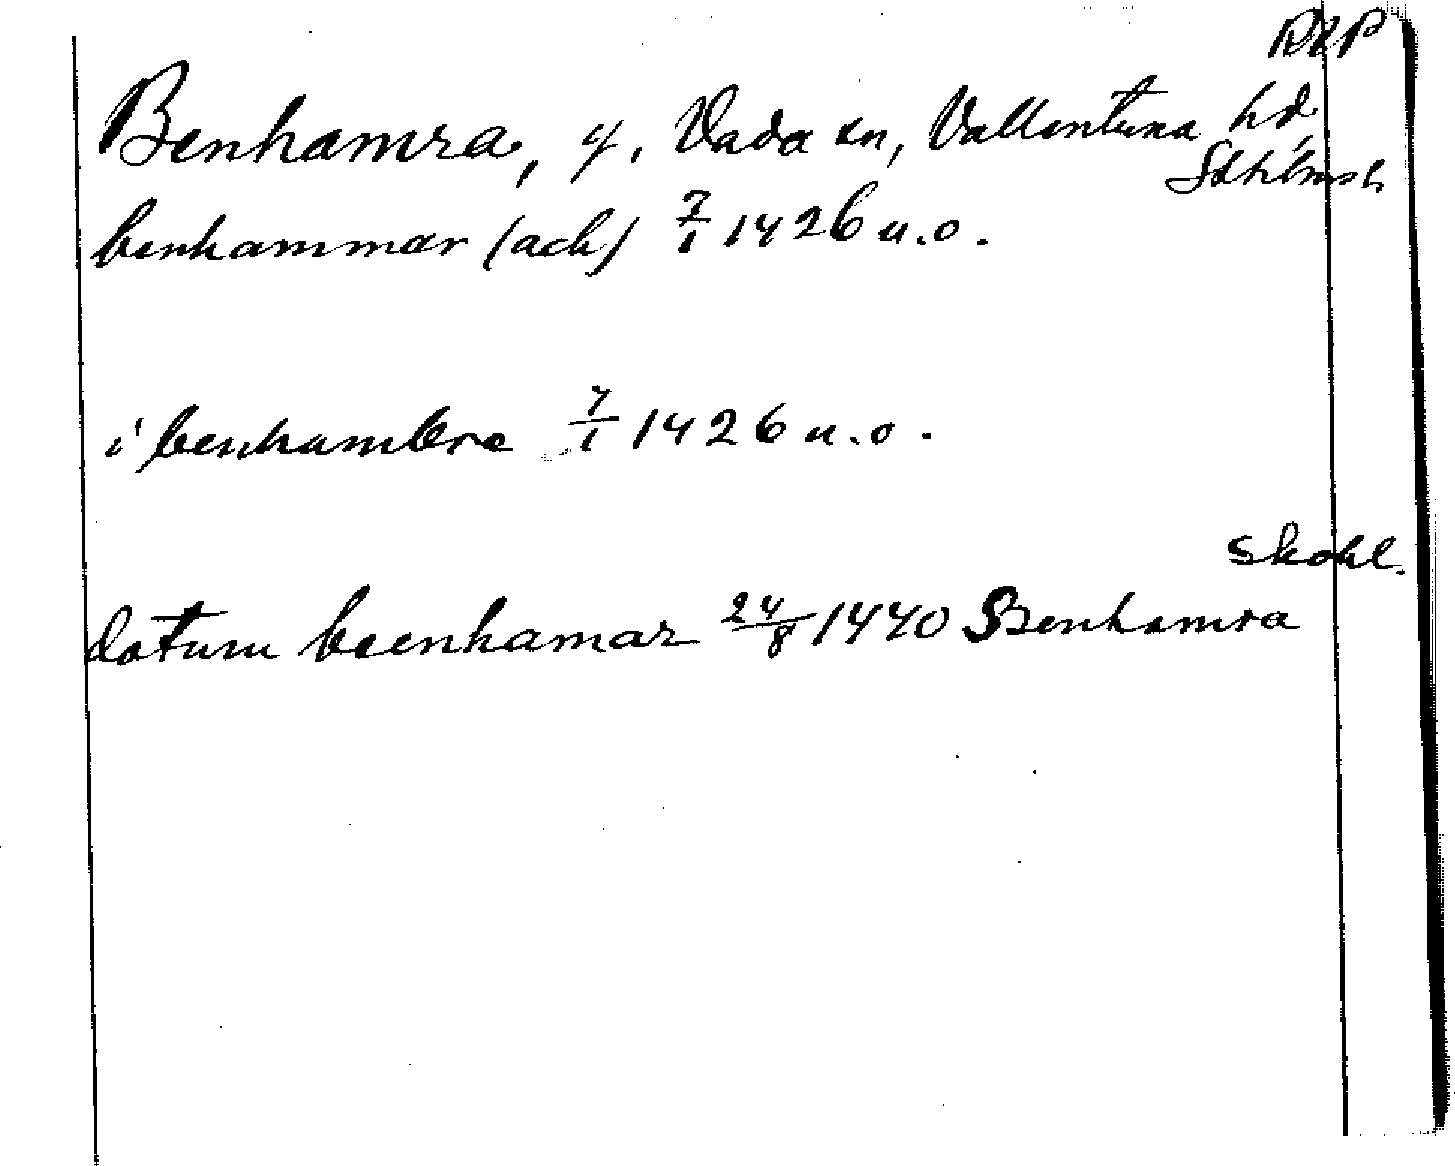 RAP
Benhamra, g, Vada sn, Vallentuna hd,
Sthlms l.
benhammar (ack) 7/1 1426 u.o.
i benhambre 7/1 1426 u.o.
Skokl.
datum beenhamar 24/8 1440 Benhamra